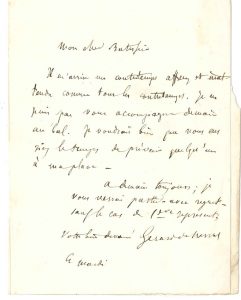 Mon cher
Il m'arrive un contretemps affreux et inat
tendu comme tous les contretemps. Je ne
puis pas vous accompagner demain
au bal. Je voudrais bien que vous eus
siez le temps de prévenir quelqu'un
à ma place —
A demain toujours ; je
vous verrai partir avec regret
sauf le cas de 1ère représent
Votre bien dévoué Gérard de Nerval
Ce mardi